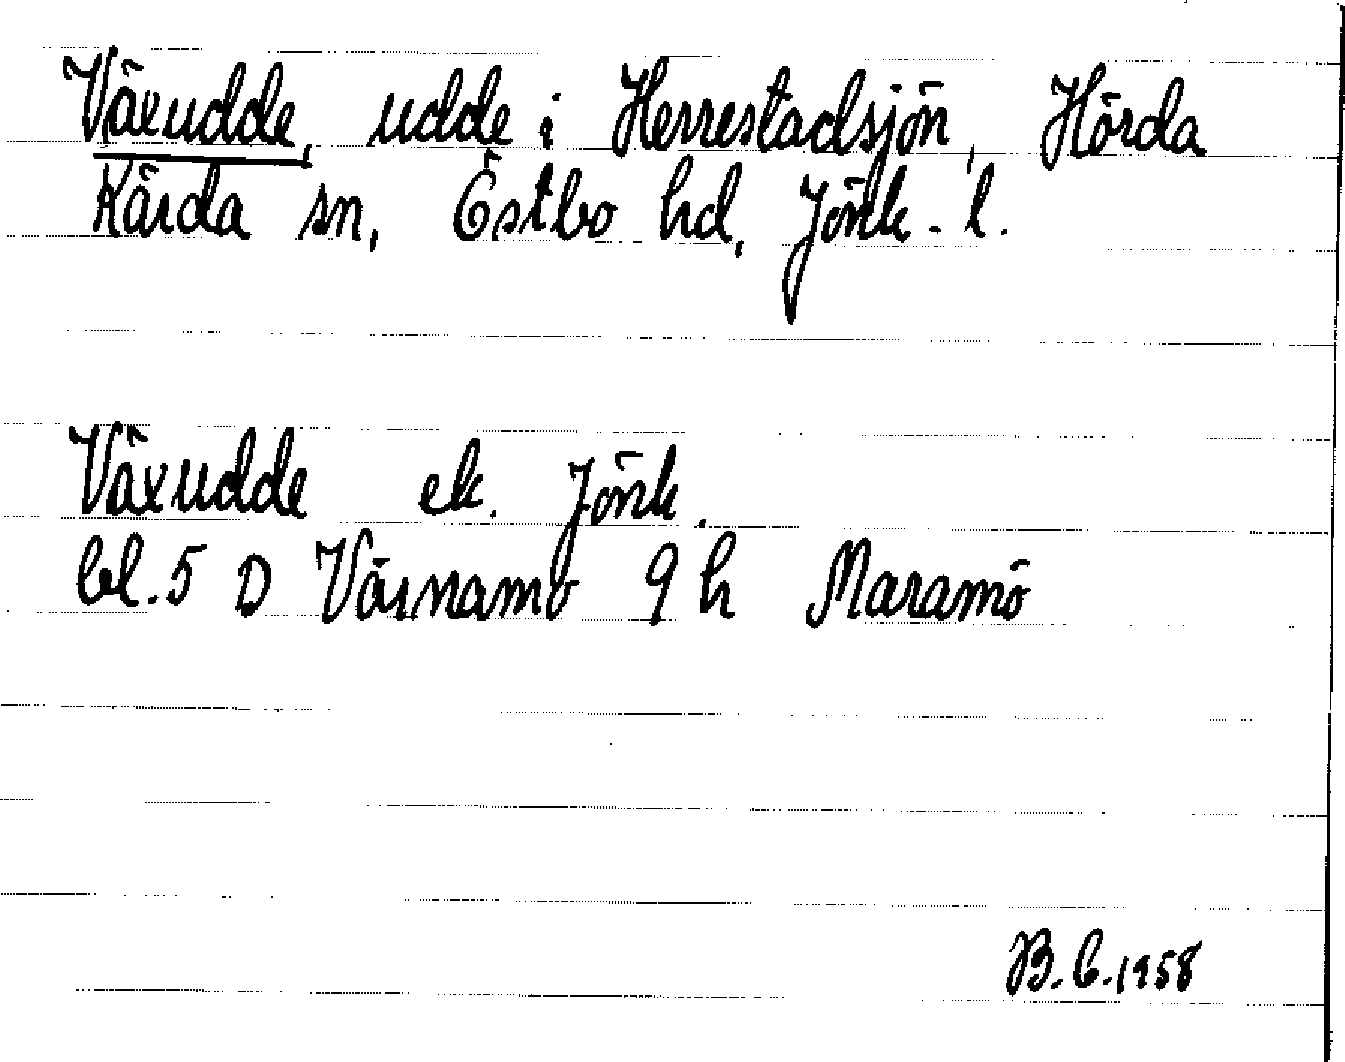 Växudde, udde i Herrestadsjön, Hörda
Kärda sn, Östbo hd, Jönk. l.
Växudde ek. Jönk.
bl. 5 D Värnamo 9 h Maramö
B. C. 1958